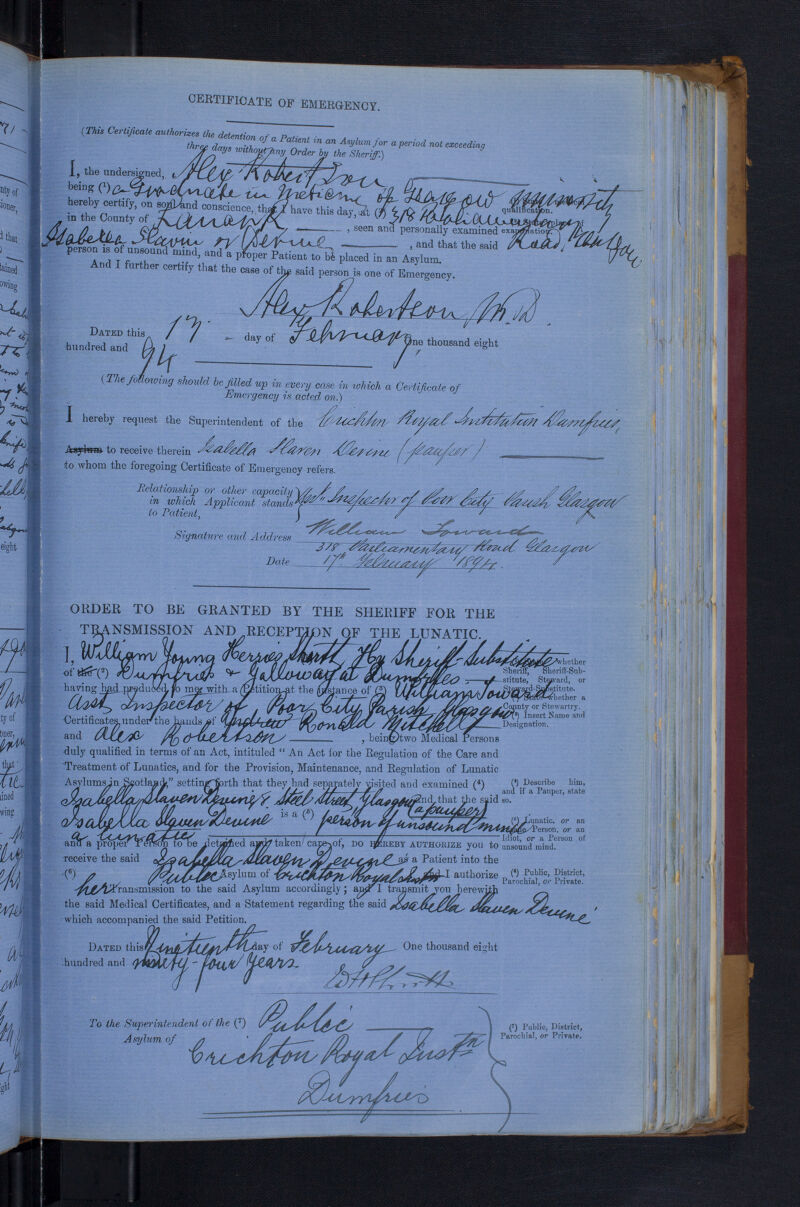 CERTIFICATE OF EMERGENCY.
(This Certificate authorizes the detention of a Patient in an Asylum for a period not exceeding
three days without any Order by the Sheriff.)
I, the undersigned, Alex Robertson
being (¹) a Graduate in Medicine of Glasgow University
qualification.
hereby certify, on soul and conscience, that I have this day, at (²) 318 Parliamentary
in the County of Lanark, seen and personally examined
examination.
Road, Glasgow
Isabella Slavin or Devine, and that the said
person is of unsound mind, and a proper Patient to be placed in an Asylum.
And I further certify that the case of the said person is one of Emergency.
Alex Robertson M.D.
DATED this 17 day of February One thousand eight
hundred and 94
(The following should be filled up in every case in which a Certificate of
Emergency is acted on.)
I hereby request the Superintendent of the Crichton Royal Institution Dumfries,
Asylum to receive therein Isabella Slaven Devine (pauper)
to whom the foregoing Certificate of Emergency refers.
Relationship or other capacity
in which Applicant stands
to Patient,
Asst. Inspector of Poor City Parish Glasgow
Signature and Address William Toward
318 Parliamentary Road Glasgow
Date 17th February 1894.
ORDER TO BE GRANTED BY THE SHERIFF FOR THE
TRANSMISSION AND RECEPTION OF THE LUNATIC.
I, William Young Herries Sheriff-Substitute
of the (¹) Dumfries & Galloway at Dumfries
whether
Sheriff, Sheriff-Sub-
stitute, Steward, or
Steward-Substitute.
having had produced to me, with a Petition at the instance of (³) William Toward
whether a
County or Stewartry.
Asst Inspector of Poor City Parish Glasgow
(³) Insert Name and
Designation.
Certificates under the hands of Andrew Ronald Mitchell
and Alex Robertson, being two Medical Persons
duly qualified in terms of an Act, intituled "An Act for the Regulation of the Care and
Treatment of Lunatics, and for the Provision, Maintenance, and Regulation of Lunatic
Asylums in Scotland," setting forth that they had separately visited and examined (⁴)
(⁴) Describe him,
and if a Pauper, state
so.
Isabella Slaven Devine 8 Steel Street Glasgow (a pauper) and that the said
Isabella Slaven Devine is a (⁵) person of unsound mind
(⁵) Lunatic, or an
Insane Person, or an
Idiot, or a Person of
unsound mind.
a lunatic
and a proper Person to be detained and taken care of, DO HEREBY AUTHORIZE you to
receive the said Isabella Slaven Devine as a Patient into the
(⁶) Public Asylum of Crichton Royal Instn I authorize
(⁶) Public, District,
Parochial, or Private.
her transmission to the said Asylum accordingly; and I transmit you herewith
the said Medical Certificates, and a Statement regarding the said Isabella Slaven Devine
which accompanied the said Petition.
DATED this Nineteenth day of February One thousand eight
hundred and ninety-four Years.
To the Superintendent of the (⁷) Public
Asylum of
(⁷) Public, District,
Parochial, or Private.
Crichton Royal Instn
Dumfries